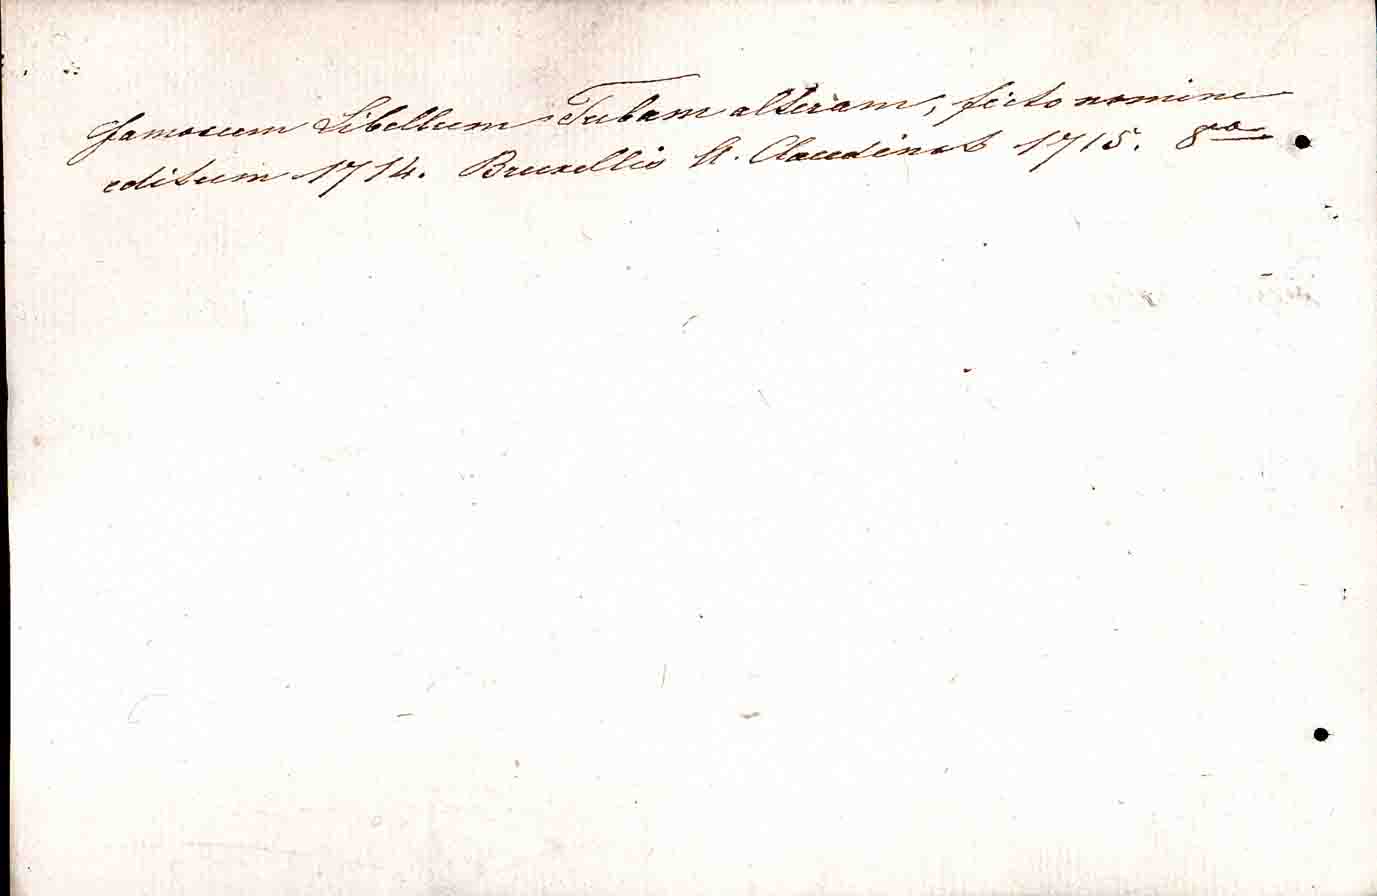 famosum Libellum Tubam alteram, ficto nomine
editum 1714. Bruxellis A. Claudinot 1715. 8vo